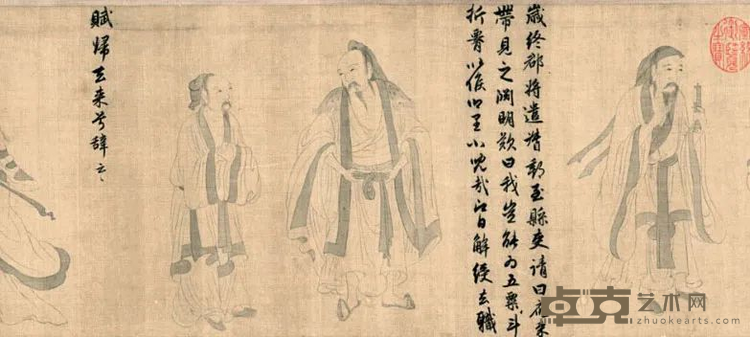 歲終郡將遣督郵至縣吏請曰應束
帶見之淵明歎曰我豈能为五粟斗
折腰以俟鄉里小兒哉即日解綬去職
賦歸去来兮辭云々
卓克艺术网
zhuokearts.com